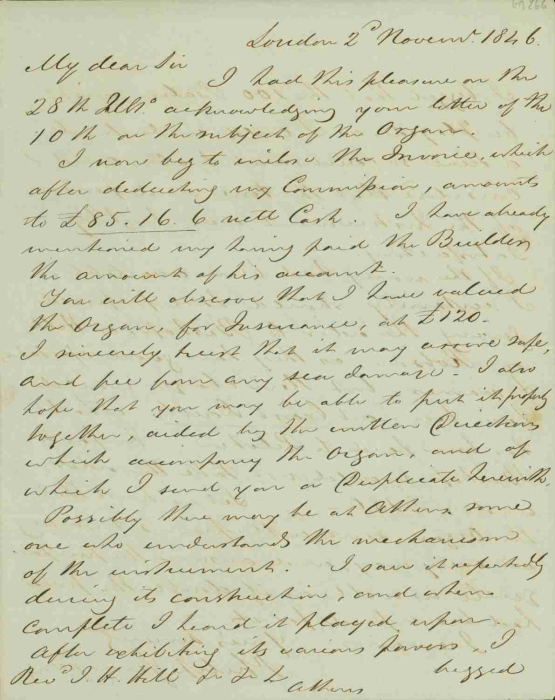 London 2d Novemr. 1846.
My dear Sir
I had this pleasure on the
28th Ulto. acknowledging your letter of the
10th on the subject of the Organ.
I now beg to inclose the Invoice, which
after deducting my Commission, amounts
to £85.16.6 nett Cash. I have already
mentioned my having paid the Builder
the amount of his account.
You will observe that I have valued
the Organ, for Insurance, at £120.
I sincerely trust that it may arrive safe,
and free from any sea damage. I also
hope that you may be able to put it properly
together, aided by the written Directions
which accompany the Organ, and of
which I send you a Duplicate herewith.
Possibly there may be at Athens some
one who understands the mechanism
of the instrument. I saw it repeatedly
during its construction, and when
complete I heard it played upon.
After exhibiting its various powers, I
begged
Revd. J. H. Hill
Athens